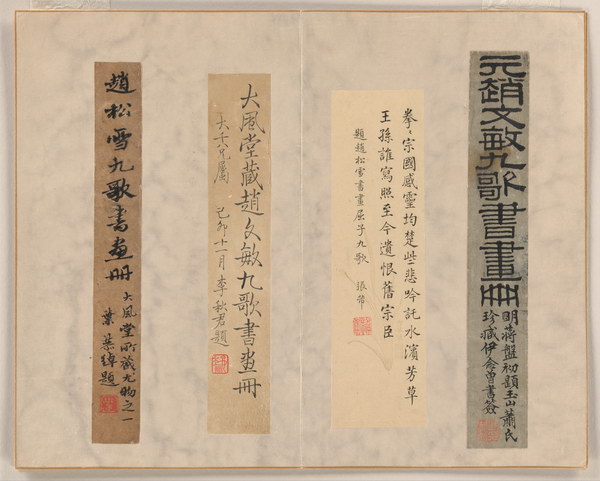 元趙文敏九歌書畫冊
明蔣盤初題玉山蕭氏
珍臧伊念曾書簽
拳〻宗國感靈均楚些悲吟託水濱芳草
王孫誰寫照至今遺恨舊宗臣
題趙松雪書畫屈子九歌
大風堂藏趙文敏九歌書画冊
大千兄屬 己卯十一月 李秋君題
趙松雪九歌書画冊
大風堂所藏尤物之一
葉恭綽題